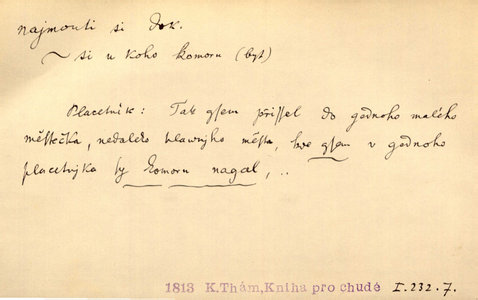 najmouti si dok.
~ si u koho komoru (byt)
Placetník: Tak gsem přissel do gednoho malého
městečka, nedaleko hlawnjho města, kde gsem v gednoho
placetnjka sy komoru nagal, ..
1813 K.Thám,Kniha pro chudé I.232.7.